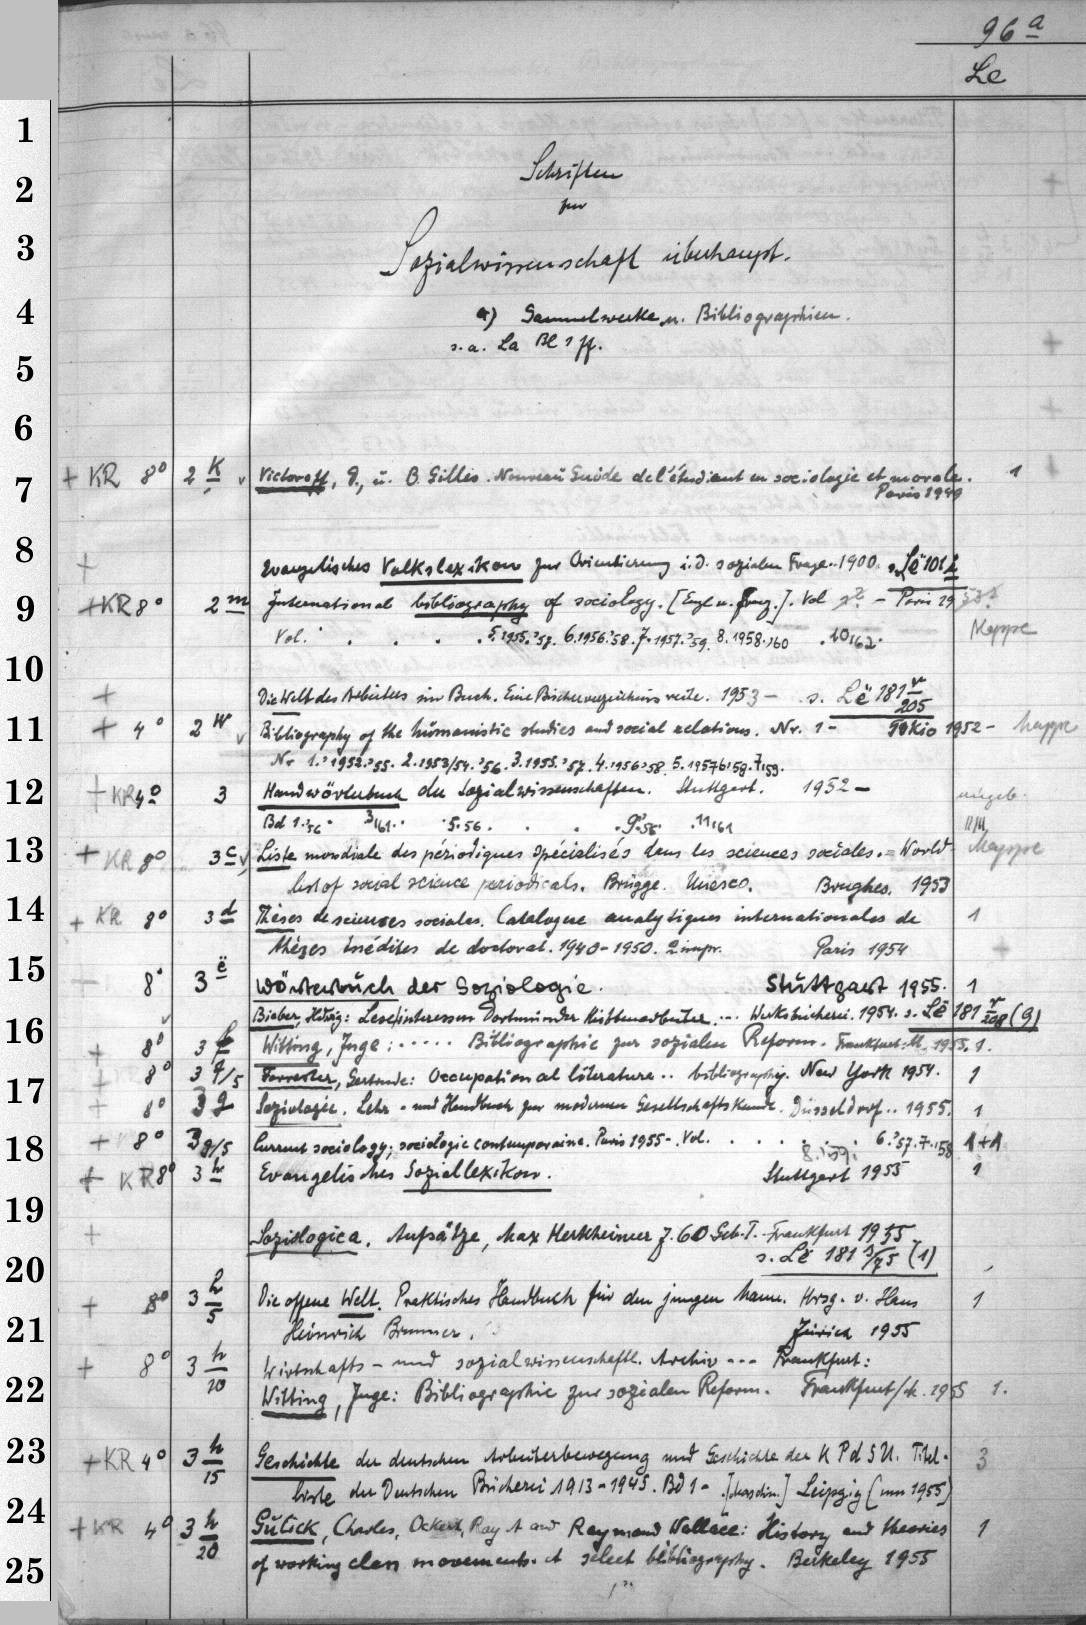 96a
Le
1
2 Schriften
zur
3 Sozialwissenschaft überhaupt.
4 a) Sammelwerke u. Bibliographien.
s. a. La Bl 1 ff.
5
6
7 + KR 8° 2 K v Victoroff, D., u. B. Gilles. Nouveau Guide de l'étudiant en sociologie et morale. 1
Paris 1949
8 + Evangelisches Volkslexikon zur Orientierung i. d. sozialen Frage. 1900. s. Lë 101
9 + KR 8° 2 m International bibliography of sociology. [Engl. u. franz.]. Vol - Paris
Vol. . . . . 5.1955.'57. 6.1956.'58. 7.1957.'59. 8.1958.'60 .10.'62. Mappe
10
+ Die Welt des Arbeiters im Buch. Eine Bücherverzeichnisreihe. 1953 - s. Lë 181 r/205
11 + 4° 2 w v Bibliography of the humanistic studies and social relations. Nr. 1 - Tokio 1952 - Mappe
Nr 1.'1952.'55. 2.1953/54.'56. 3.1955.'57. 4.1956.'58. 5.1957 6.'59. 7.'59.
12 + KR 4° 3 Handwörterbuch der Sozialwissenschaften. Stuttgart. 1952 -
Bd 1.'56 3.'61. . 5.'56. . . . 9.'56 . 11.'61
13 + KR 8° 3 c v Liste mondiale des périodiques spécialisés dans les sciences sociales. = World Mappe
list of social science periodicals. Brügge. Unesco. Brughes. 1953
14 + KR 8° 3 d Thèses de sciences sociales. Catalogue analytiques internationales de 1
thèses inédites de doctorat. 1940-1950. 2 impr. Paris 1954
15 8° 3 ë Wörterbuch der Soziologie. Stuttgart 1955. 1
v Bieber, Hedwig: Leseinteressen Dortmunder Hüttenarbeiter. ... Werksbücherei. 1954. s. Lë 181 r/208 (9)
16 + 8° 3 f Witting, Inge: ..... Bibliographie zur sozialen Reform. Frankfurt: M. 1955. 1.
+ 8° 3 f/5 Forrester, Gertrude: Occupational literature .. bibliography. New York 1954. 1
17 + 8° 3 g Soziologie. Lehr- und Handbuch zur modernen Gesellschaftskunde. Düsseldorf .. 1955. 1
18 + 8° 3 g/5 Current sociology; sociologie contemporaine. Paris 1955 - Vol. . . . . . 6.'57. 7.'58 1+1
8.'59.
+ KR 8° 3 h Evangelisches Soziallexikon. Stuttgart 1955 1
19 + Soziologica. Aufsätze, Max Horkheimer z. 60 Geb.T. Frankfurt 1955
s. Lë 181 s/75 (1)
20 + 8° 3 h/5 Die offene Welt. Praktisches Handbuch für den jungen Mann. Hrsg. v. Hans 1
21 Heinrich Brunner. Zürich 1955
+ 8° 3 h/10 Wirtschafts- und sozialwissenschaftl. Archiv ... Frankfurt:
22 Witting, Inge: Bibliographie zur sozialen Reform. Frankfurt/M. 1955 1.
23 + KR 4° 3 h/15 Geschichte der deutschen Arbeiterbewegung und Geschichte der KPdSU. Titel- 3
liste der Deutschen Bücherei 1913-1945. Bd 1 - . [Maschin.] Leipzig (um 1955)
24 + KR 4° 3 h/20 Gulick, Charles, Ockert, Roy A and Raymond Wallace: History and theories 1
25 of working class movements. A select bibliography. Berkeley 1955